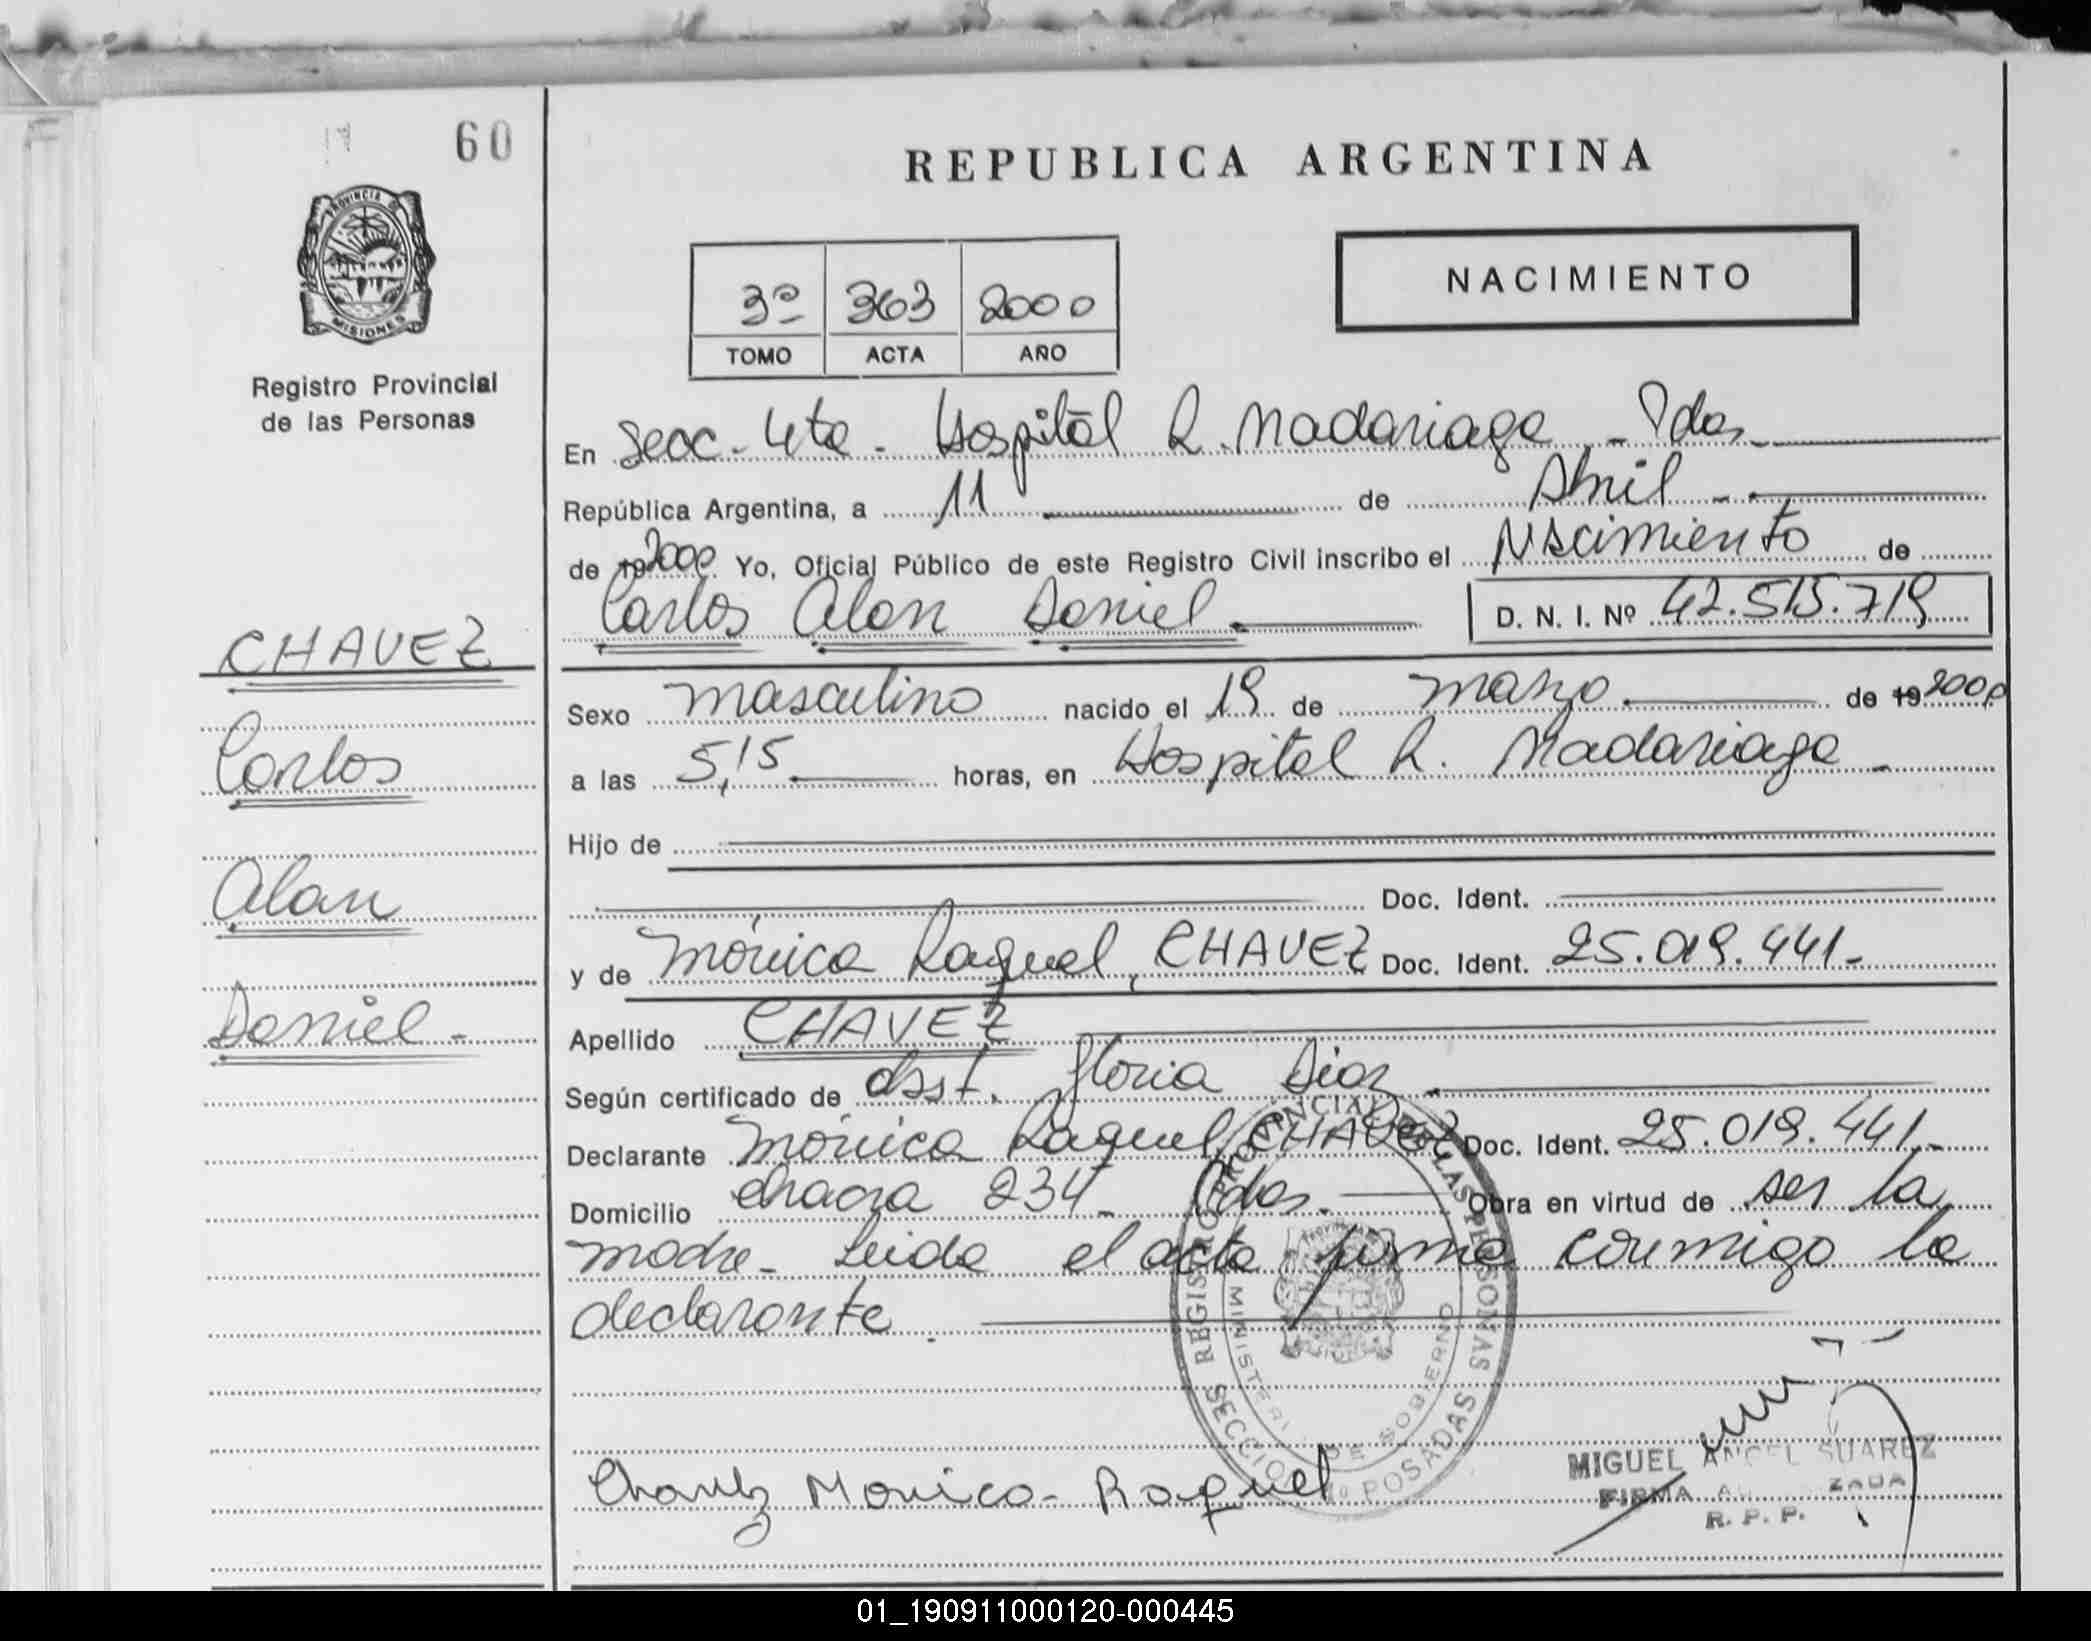 60
PROVINCIA DE
MISIONES
Registro Provincial
de las Personas
REPUBLICA ARGENTINA
NACIMIENTO
3º 363 2000
TOMO ACTA AÑO
En Secc. 4ta. Hospital R. Madariaga - Pdas.
República Argentina, a 11 de Abril
de 19 2000 Yo, Oficial Público de este Registro Civil inscribo el Nacimiento de
Carlos Alan Daniel D. N. I. Nº 42.515.719
CHAVEZ
Carlos
Alan
Daniel -
Sexo masculino nacido el 19 de marzo de 19 2000
a las 5,15 horas, en Hospital R. Madariaga -
Hijo de
Doc. Ident.
y de Mónica Raquel, CHAVEZ Doc. Ident. 25.019.441-
Apellido CHAVEZ
Según certificado de Obst. Gloria Diaz
Declarante Mónica Raquel, CHAVEZ Doc. Ident. 25.019.441-
Domicilio chacra 234- Pdas. Obra en virtud de ser la
madre - Leida el acta firma conmigo la
declarante.
REGISTRO PROVINCIAL DE LAS PERSONAS
MINISTERI DE GOBIERNO
SECCIO Nº POSADAS
Chavez Monica - Raquel
MIGUEL ANGEL SUAREZ
FIRMA AU ZADA
R. P. P.
01_190911000120-000445